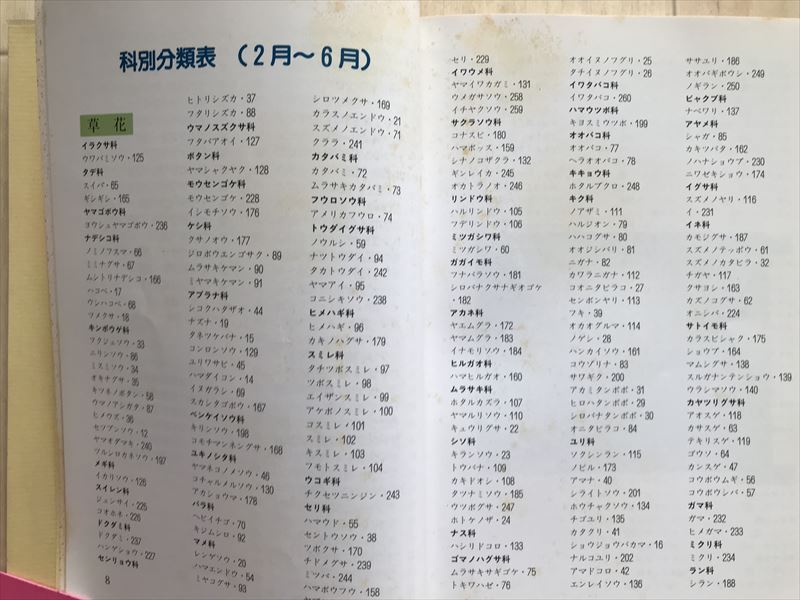 科別分類表 (2月〜6月)
草花
イラクサ科
ウワバミソウ・125
タデ科
スイバ・65
ギシギシ・165
ヤマゴボウ科
ヨウシュヤマゴボウ・236
ナデシコ科
ノミノフスマ・66
ミミナグサ・67
ムシトリナデシコ・166
ハコベ・17
ウシハコベ・68
ツメクサ・18
キンポウゲ科
フクジュソウ・33
ニリンソウ・86
ミスミソウ・34
オキナグサ・35
キツネノボタン・58
ウマノアシガタ・87
ヒメウズ・36
セツブンソウ・12
ヤマオダマキ・246
ツルシロカネソウ・197
メギ科
イカリソウ・126
スイレン科
ジュンサイ・225
コオホネ・226
ドクダミ科
ドクダミ・237
ハンゲショウ・227
センリョウ科
8
ヒトリシズカ・37
フタリシズカ・88
ウマノスズクサ科
フタバアオイ・127
ボタン科
ヤマシャクヤク・128
モウセンゴケ科
モウセンゴケ・228
イシモチソウ・176
ケシ科
クサノオウ・177
ジロボウエンゴサク・89
ムラサキケマン・90
ミヤマキケマン・91
アブラナ科
ショカツサイ・44
ナズナ・19
タネツケバナ・15
コンロンソウ・129
ユリワサビ・45
ハマダイコン・14
イヌガラシ・69
スカシタゴボウ・167
ベンケイソウ科
キリンソウ・198
コモチマンネングサ・168
ユキノシタ科
ヤマネコノメソウ・46
コチャルメルソウ・130
アカショウマ・178
バラ科
ヘビイチゴ・70
キジムシロ・92
マメ科
レンゲソウ・20
ハマエンドウ・54
ミヤコグサ・93
シロツメクサ・169
カラスノエンドウ・21
スズメノエンドウ・71
クララ・241
カタバミ科
カタバミ・72
ムラサキカタバミ・73
フウロソウ科
アメリカフウロ・74
トウダイグサ科
ノウルシ・59
ナツトウダイ・94
タカトウダイ・242
ヤマアイ・95
コニシキソウ・238
ヒメハギ科
ヒメハギ・96
カキノハグサ・179
スミレ科
タチツボスミレ・97
ツボスミレ・98
エイザンスミレ・99
アケボノスミレ・100
コスミレ・101
スミレ・102
キスミレ・103
フモトスミレ・104
ウコギ科
チクセツニンジン・243
セリ科
ハマウド・55
セントウソウ・38
ツボクサ・170
チドメグサ・239
ミツバ・244
ハマボウフウ・158
セリ・229
イワウメ科
ヤマイワカガミ・131
ウメガサソウ・258
イチヤクソウ・259
サクラソウ科
コナスビ・180
ハマボッス・159
シナノコザクラ・132
ギンレイカ・245
オカトラノオ・246
リンドウ科
ハルリンドウ・105
フデリンドウ・106
ミツガシワ科
ミツガシワ・60
ガガイモ科
フナバラソウ・181
シロバナクサナギオゴケ
・182
アカネ科
ヤエムグラ・172
ヤマムグラ・183
イナモリソウ・184
ヒルガオ科
ハマヒルガオ・160
ムラサキ科
ホタルカズラ・107
ヤマルリソウ・110
キュウリグサ・22
シソ科
キランソウ・23
トウバナ・109
カキドオシ・108
タツナミソウ・185
ウツボグサ・247
ホトケノザ・24
ナス科
ハシリドコロ・133
ゴマノハグサ科
ムラサキサギゴケ・75
トキワハゼ・76
オオイヌノフグリ・25
タチイヌノフグリ・26
イワタバコ科
イワタバコ・260
ハマウツボ科
キヨスミウツボ・199
オオバコ科
オオバコ・77
ヘラオオバコ・78
キキョウ科
ホタルブクロ・248
キク科
ノアザミ・111
ハルジオン・79
ハハコグサ・80
オオジシバリ・81
ニガナ・82
カワラニガナ・112
コオニタビラコ・27
センボンヤリ・113
フキ・39
オカオグルマ・114
ノゲシ・28
ハンカイソウ・161
コウゾリナ・83
サワギク・200
アカミタンポポ・31
ヒロハタンポポ・29
シロバナタンポポ・30
オニタビラコ・84
ユリ科
ソクシンラン・115
ノビル・173
アマナ・40
シライトソウ・201
ホウチャクソウ・134
チゴユリ・135
カタクリ・41
ショウジョウバカマ・16
ナルコユリ・202
アマドコロ・42
エンレイソウ・136
ササユリ・186
オオバギボウシ・249
ノギラン・250
ビャクブ科
ナベワリ・137
アヤメ科
シャガ・85
カキツバタ・162
ノハナショウブ・230
ニワゼキショウ・174
イグサ科
スズメノヤリ・116
イ・231
イネ科
カモジグサ・187
スズメノテッポウ・61
スズメノカタビラ・32
チガヤ・117
クサヨシ・163
カズノコグサ・62
オニシバ・224
サトイモ科
カラスビシャク・175
ショウブ・164
マムシグサ・138
スルガテンナンショウ・139
ウラシマソウ・140
カヤツリグサ科
アオスゲ・118
カサスゲ・63
テキリスゲ・119
ゴウソ・64
カンスゲ・47
コウボウムギ・56
コウボウシバ・57
ガマ科
ガマ・232
ヒメガマ・233
ミクリ科
ミクリ・234
ラン科
シラン・188